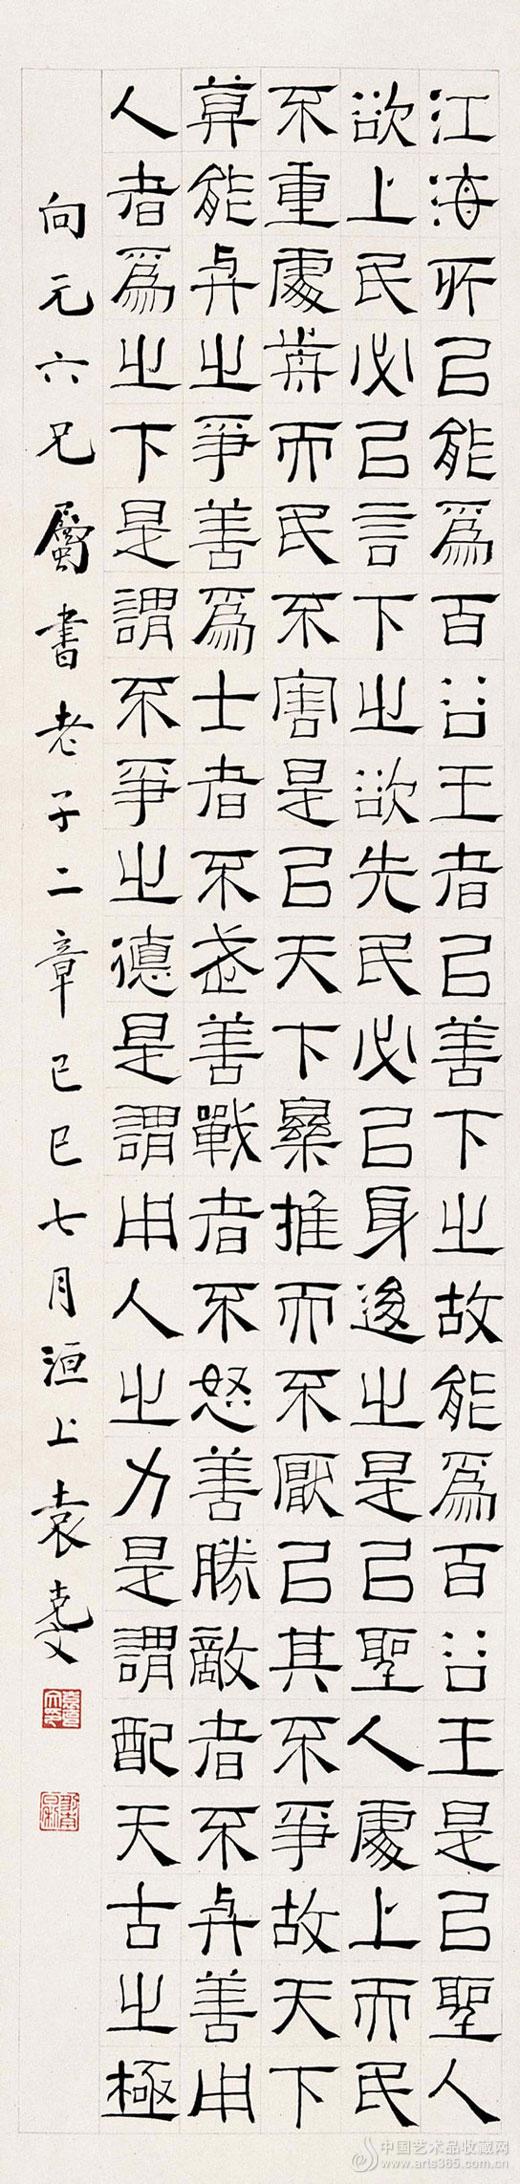 江海所㠯能爲百谷王者㠯善下之故能爲百谷王是㠯聖人
欲上民必㠯言下之欲先民必㠯身後之是㠯聖人處上而民
不重處歬而民不害是㠯天下樂推而不厭㠯其不爭故天下
莫能與之爭善爲士者不武善戰者不怒善勝敵者不與善用
人者爲之下是謂不爭之德是謂用人之力是謂配天古之極
向元六兄屬書老子二章己巳七月洹上袁克文
中国艺术品收藏网
www.arts365.com